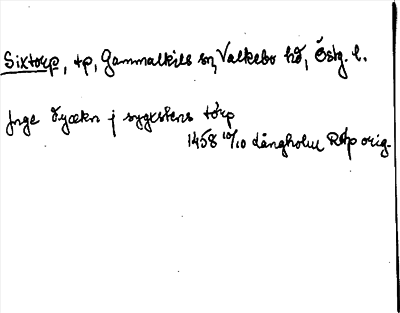 Sixtorp, tp, Gammalkils sn, Valkebo hd, Östg. l.
Jnge dyækn j sygxstens torp
1458 10/10 Långholm RAp orig.